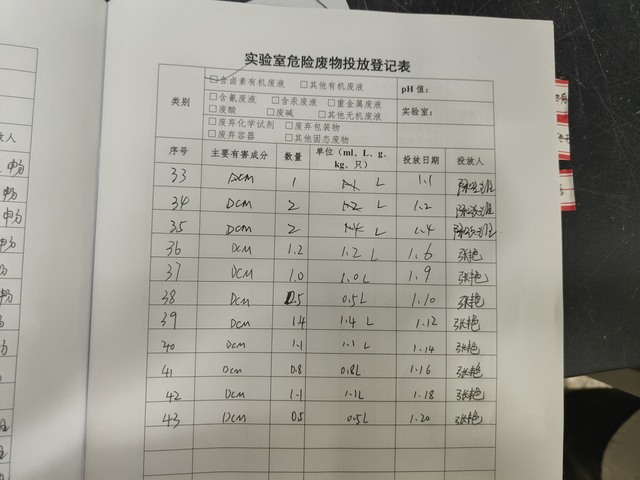 实验室危险废物投放登记表
类别 □含卤素有机废液 □其他有机废液 pH 值：
□含氰废液 □含汞废液 □重金属废液 实验室：
□废酸 □废碱 □其他无机废液
□废弃化学试剂 □废弃包装物
□废弃容器 □其他固态废物
序号 主要有害成分 数量 单位（ml、L、g、kg、只） 投放日期 投放人
33 DCM 1 L 1.1
34 DCM 2 L 1.2
35 DCM 2 L 1.4
36 DCM 1.2 1.2 L 1.6 张艳
37 DCM 1.0 1.0L 1.9 张艳
38 DCM 0.5 0.5L 1.10 张艳
39 DCM 1.4 1.4 L 1.12 张艳
40 DCM 1.1 1.1 L 1.14 张艳
41 Dcm 0.8 0.8L 1.16 张艳
42 DCM 1.1 1.1L 1.18 张艳
43 DCM 0.5 0.5L 1.20 张艳